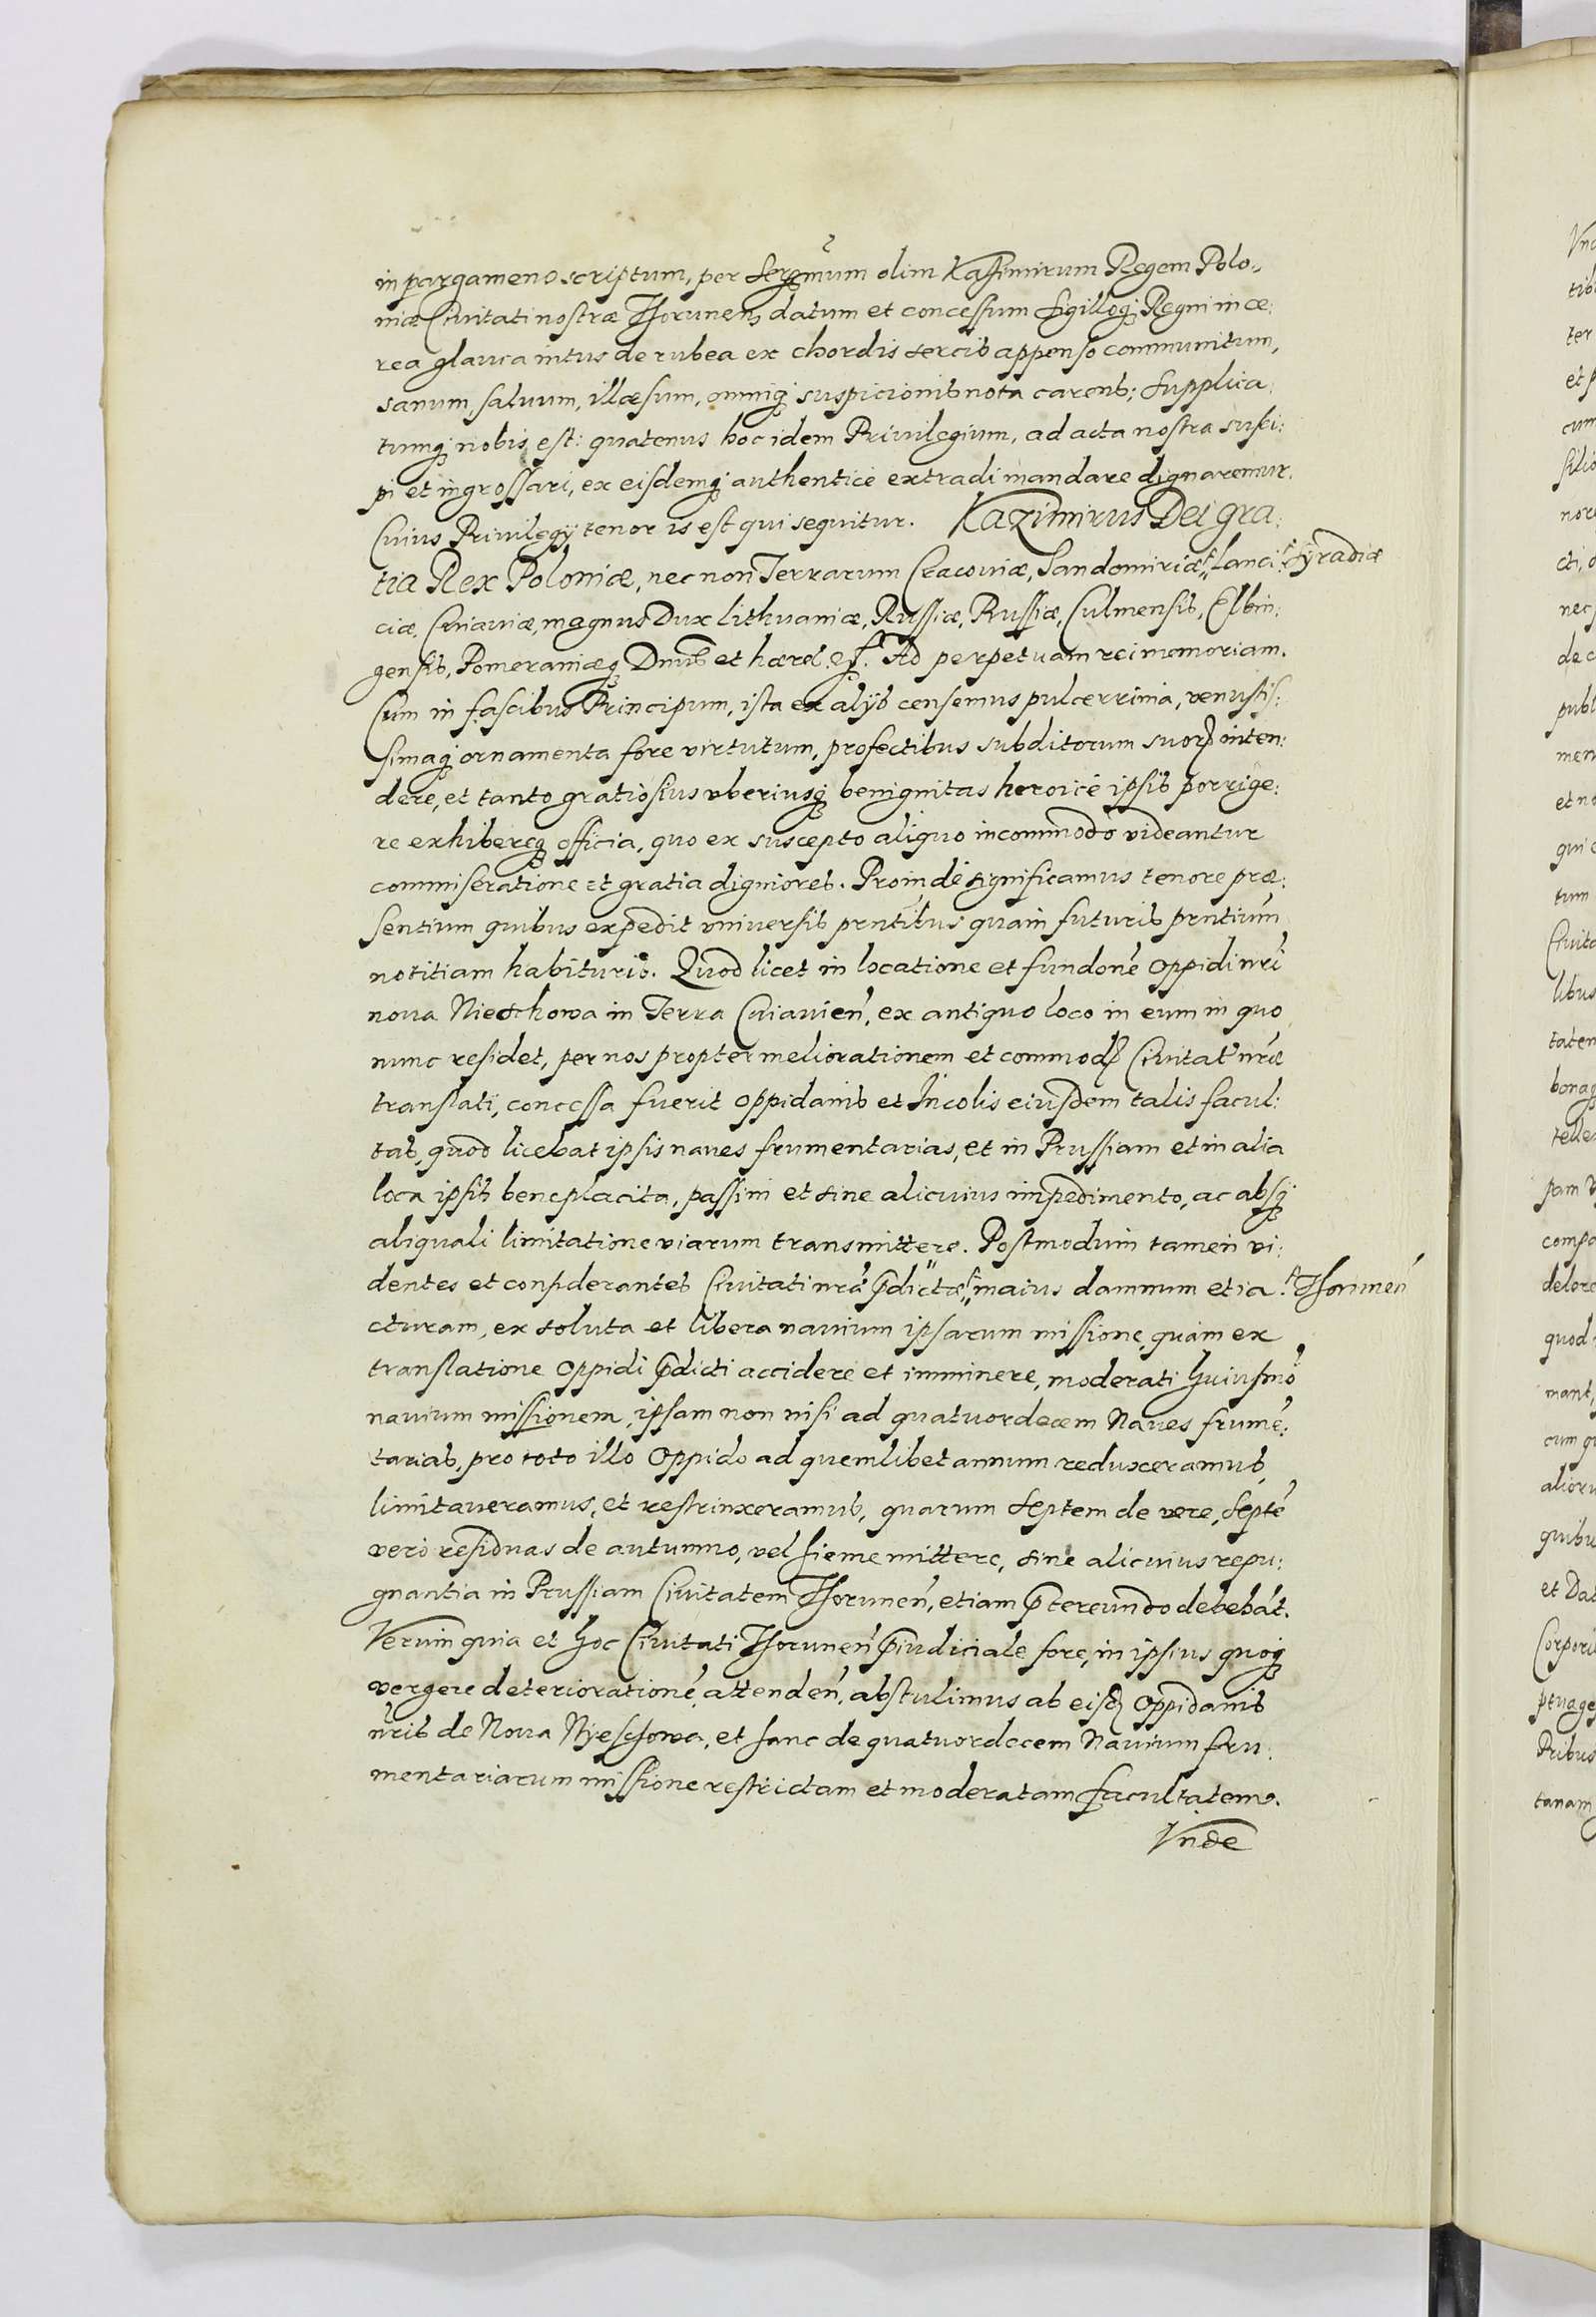 in pargameno scriptum, per Serẽmum olim Kasimirum Regem Polo„
niæ Civitati nostræ Thorunens̃ datum et concessum sigilloq; Regni in ce:
rea glauca intus de rubea ex chordis sericis appenso communitum,
sanum, saluum, illæsum, omniq; suspicionis nota carens; supplica:
tumq; nobis est: quatenus hoc idem Privilegium, ad acta nostra susci:
pi et ingrossari, ex eisdemq; authentice extradi mandare dignaremur.
Cuius Privilegÿ tenor is est qui sequitur. Kazimirus Dei gra:
tia Rex Poloniæ, nec non Terrarum Cracoviæ, Sandomiriæ, Lanci: Syradiæ
ciæ, Cuiaviæ, magnus Dux Lithuaniæ, Russiæ, Prussiæ, Culmensis, Elbin:
gensis, Pomeraniæq; Dnus et hæres etc. Ad perpetuam rei memoriam.
Cum in fascibus Principum, ista ex alÿs censemus pulcerrima, venustis:
simaq; ornamenta fore virtutum, profectibus subditorum suorꝝ inten:
dere, et tanto gratiosius vberiusq; benignitas heroice ipsis porrige:
re exhibereq; officia, quo ex suscepto aliquo incommodo videantur
commiseratione et gratia digniores. Proinde significamus tenore præ:
sentium quibus expedit vniuersis prñtibus quam futuris prñtium
notitiam habituris. Quod licet in locatione et fundoñe Oppidi nr̃i
noua Nieschowa in Terra Cuiavieñ, ex antiquo loco in eum in quo
nunc residet, per nos propter meliorationem et commodꝝ Civitat' nr̃æ
translati, concessa fuerit Oppidanis et Incolis eiusdem talis facul:
tas, quod licebat ipsis naues frumentarias, et in Prussiam et in alia
loca ipsis beneplacita, passim et sine alicuius impedimento, ac absq;
aliquali limitatione viarum transmittere. Postmodum tamen vi:
dentes et considerantes Civitati nr̃æ p̃dictæ maius damnum et ia: Thorunen̄
cturam, ex soluta et libera navium ipsarum missione, quam ex
translatione Oppidi p̃dicti accidere et imminere, moderati huiusmõ
navium missionem, ipsam non nisi ad quatuordecem Naves frumẽ:
tarias, pro toto illo Oppido ad quemlibet annum reduxceramus,
limitaveramus, et restrinxeramus, quarum Septem de vere, Septẽ
vero residuas de autumno, vel hieme mittere, sine alicuius repu:
gnantia in Prussiam Civitatem Thoruneñ, etiam p̃tereundo debebãt.
Verum quia et hoc Civitati Thoruneñ p̃iudiciale fore, in ipsius quoq;
vergere deterioratione᷉, attendeñ, abstulimus ab eisdꝫ Oppidanis
nr̃is de Noua Nÿeschowa, et hanc de quatuordecem Navium fru:
mentariarum missione restrictam et moderatam facultatem.
Vnde